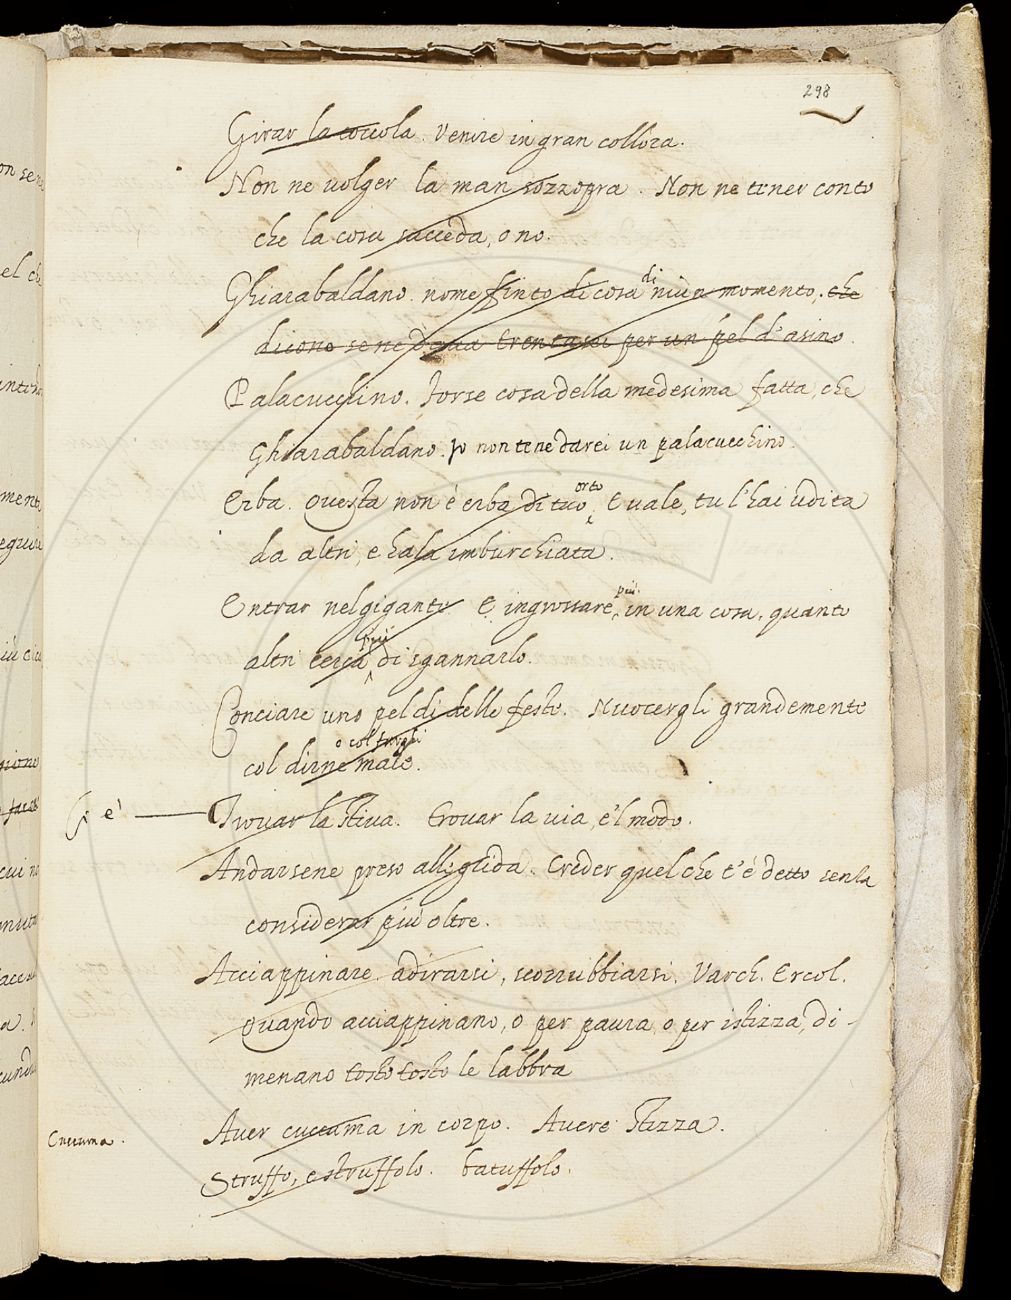 298
Girar la coccola. Venire in gran collora.
Non ne volger la man sozzopra. Non ne tener conto
che la cosa succeda, o no.
Ghiarabaldano. nome finto di cosa di niun momento, che
dicono se ne dava trentasei per un pel d'asino.
Palacucchino. forse cosa della medesima fatta, che
Ghiarabaldano. Jo non tene darei un palacucchino.
Erba. Questa non è erba di tuo orto, E vale, tu l'hai udita
da altri, e hala imburchiata.
Entrar nel gigante E ingrossare più in una cosa, quanto
altri cerca più di sgannarlo.
Conciare uno pel dì delle feste. Nuocergli grandemente
o col fargli
col dirne male.
c'è Trovar la stiva. trovar la via, e'l modo.
Andarsene preso alle grida. Creder quel che t'è detto senza
considerar più oltre.
Acciappinare adirarsi, scorrubbiarsi. Varch. Ercol.
Quando acciappinano, o per paura, o per istizza, di-
menano tosto tosto le labbra
Cuccuma. Aver cuccuma in corpo. Avere stizza.
Struffo, e struffolo. batuffolo.